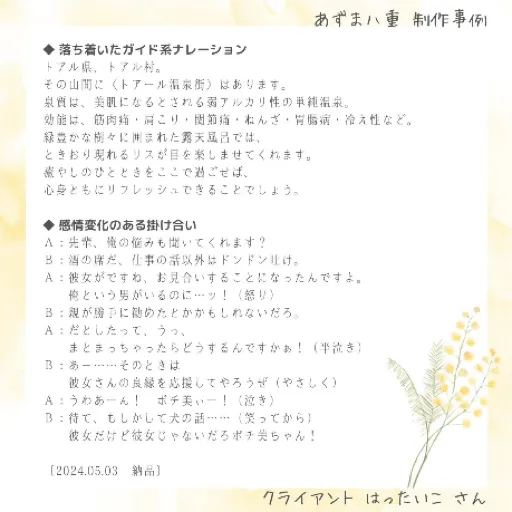 あずま八重 制作事例
◆ 落ち着いたガイド系ナレーション
トアル県、トアル村。
その山間に〈トアール温泉街〉はあります。
泉質は、美肌になるとされる弱アルカリ性の単純温泉。
効能は、筋肉痛・肩こり・関節痛・ねんざ・胃腸病・冷え性など。
緑豊かな樹々に囲まれた露天風呂では、
ときおり現れるリスが目を楽しませてくれます。
癒やしのひとときをここで過ごせば、
心身ともにリフレッシュできることでしょう。
◆ 感情変化のある掛け合い
A：先輩、俺の悩みも聞いてくれます？
B：酒の席だ、仕事の話以外はドンドン吐け。
A：彼女がですね、お見合いすることになったんですよ。
俺という男がいるのに…ッ！（怒り）
B：親が勝手に勧めたとかかもしれないだろ。
A：だとしたって、うっ、
まとまっちゃったらどうするんですかぁ！（半泣き）
B：あー……そのときは
彼女さんの良縁を応援してやろうぜ（やさしく）
A：うわあーん！　ポチ美ぃー！（泣き）
B：待て、もしかして犬の話……（笑ってから）
彼女だけど彼女じゃないだろポチ美ちゃん！
［2024.05.03　納品］
クライアント はったいこ さん